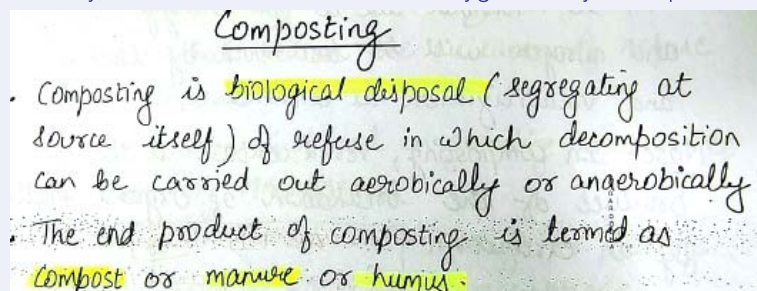 Composting
• Composting is biological disposal (segregating at
source itself) of refuse in which decomposition
can be carried out aerobically or anaerobically
• The end product of composting is termed as
compost or manure or humus.